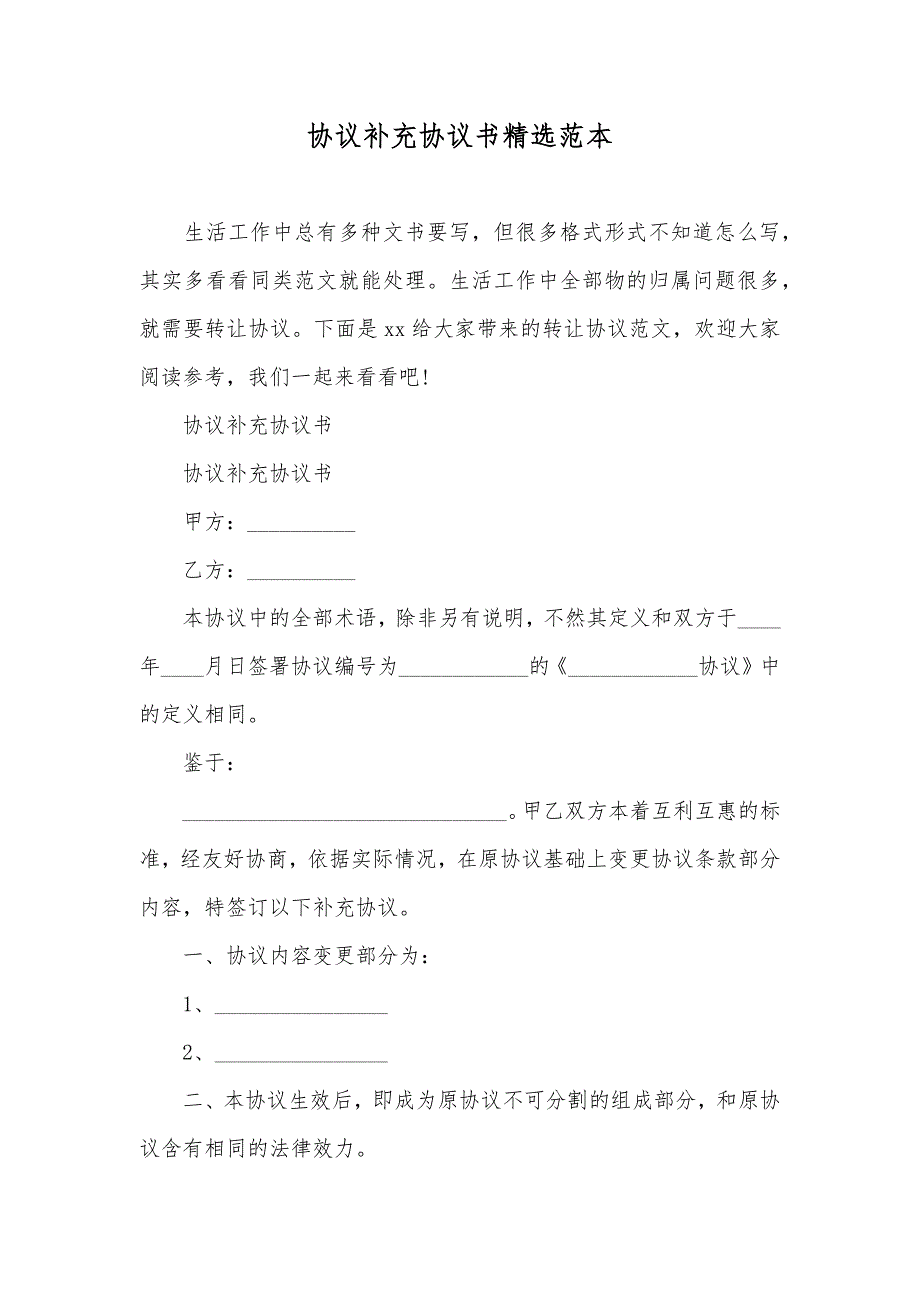 协议补充协议书精选范本
生活工作中总有多种文书要写，但很多格式形式不知道怎么写，
其实多看看同类范文就能处理。生活工作中全部物的归属问题很多，
就需要转让协议。下面是 xx 给大家带来的转让协议范文，欢迎大家
阅读参考，我们一起来看看吧!
协议补充协议书
协议补充协议书
甲方：__________
乙方：__________
本协议中的全部术语，除非另有说明，不然其定义和双方于____
年____月日签署协议编号为____________的《____________协议》中
的定义相同。
鉴于：
______________________________。甲乙双方本着互利互惠的标
准，经友好协商，依据实际情况，在原协议基础上变更协议条款部分
内容，特签订以下补充协议。
一、协议内容变更部分为：
1、________________
2、________________
二、本协议生效后，即成为原协议不可分割的组成部分，和原协
议含有相同的法律效力。